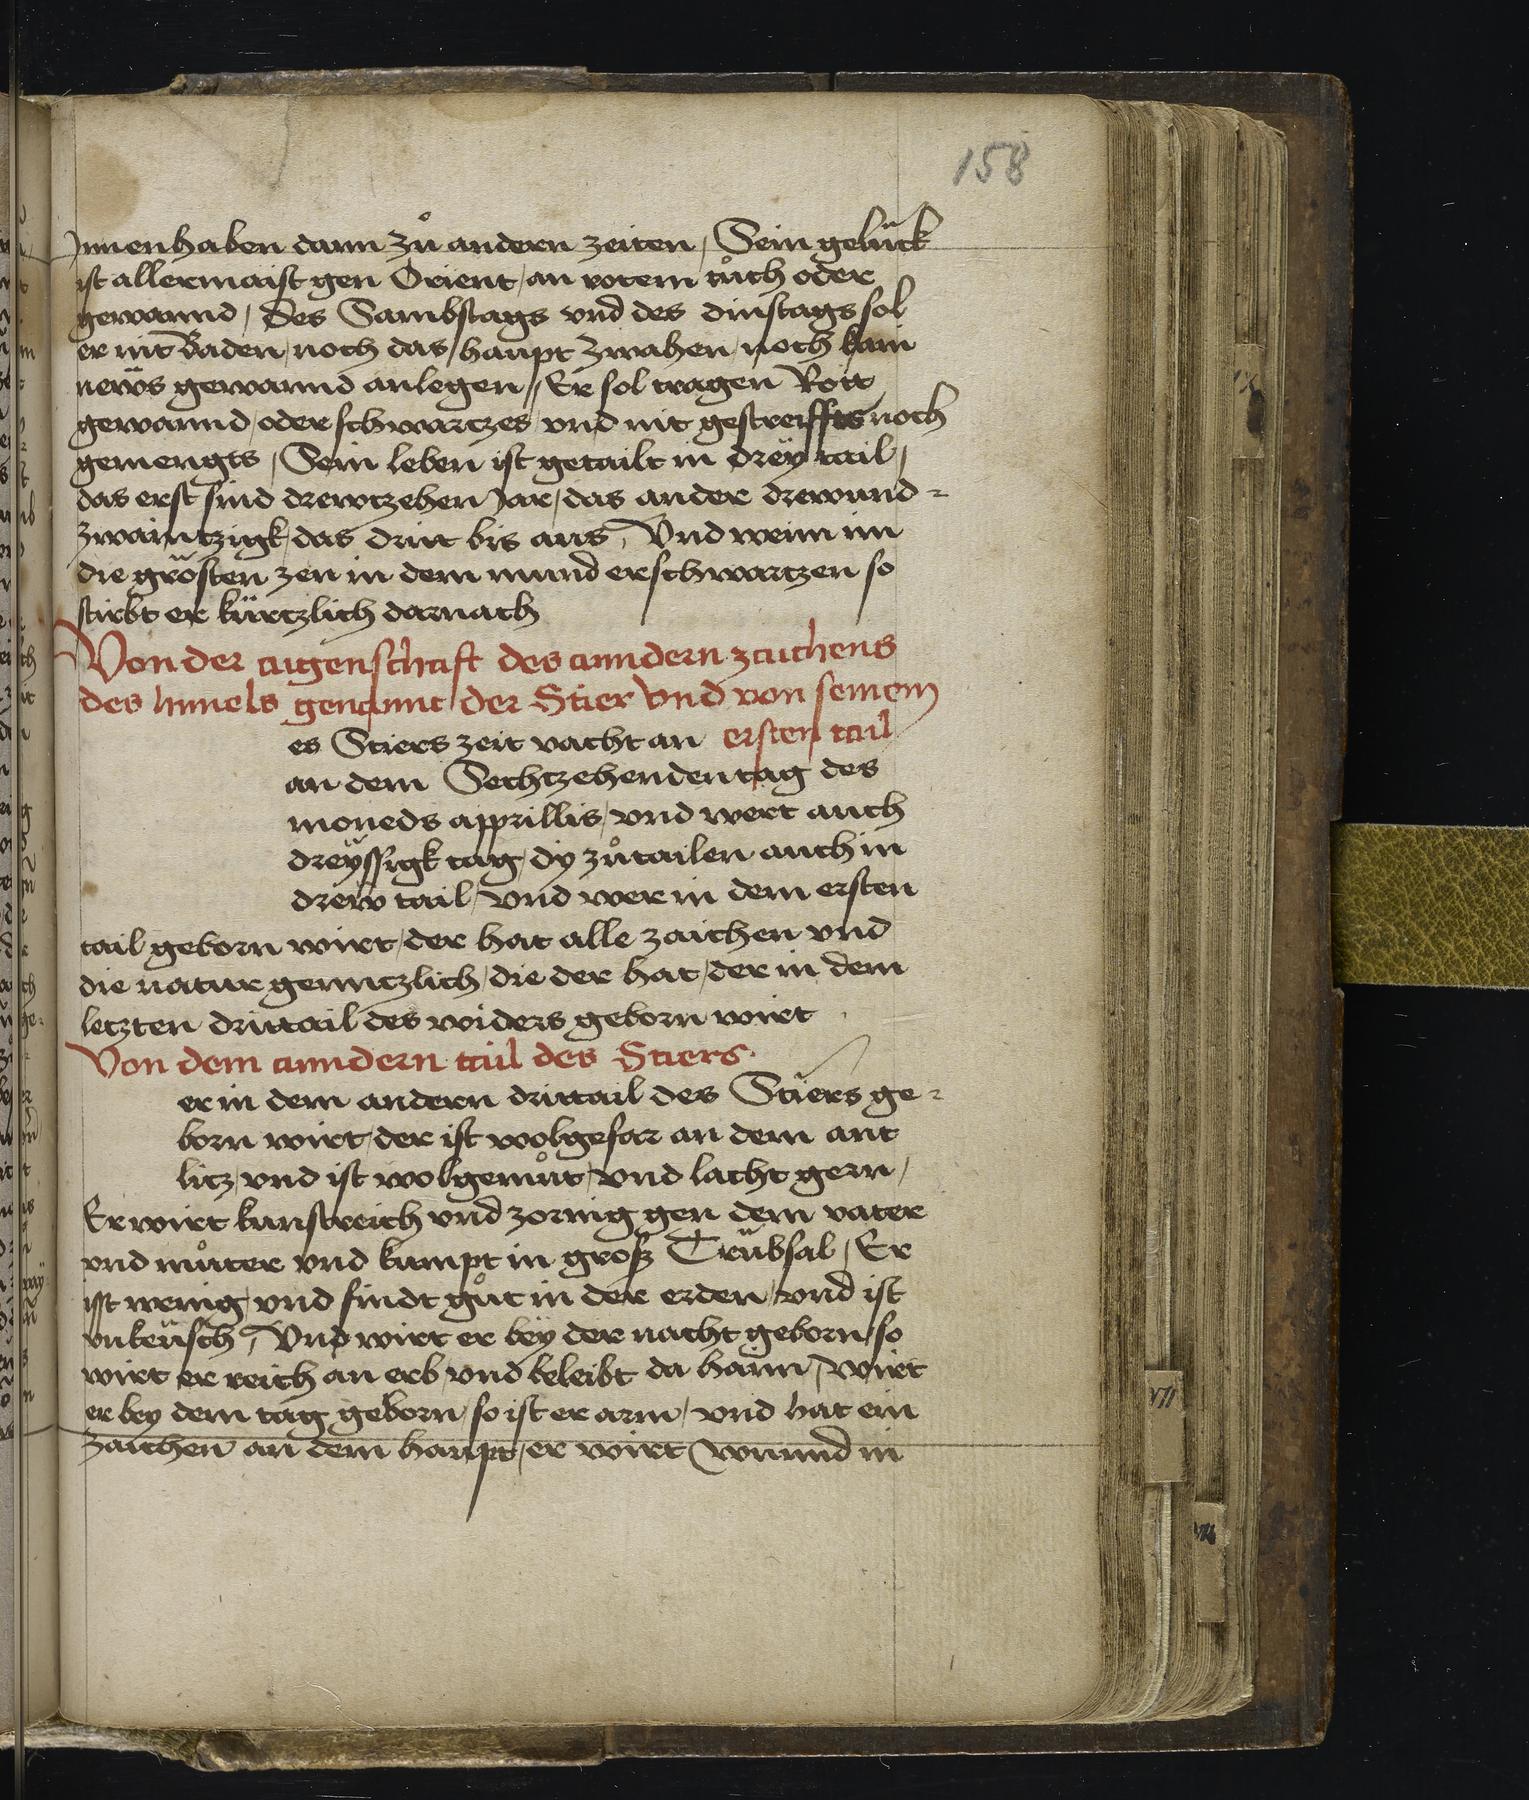 158
Innenhaben dann zů andern zeiten / Sein gelück
ist allermaist gen Orient / an rotem tůch oder
gewannd / Des Sambstags vnd des dinstags sol
er nit Baden / noch das haupt zwahen / noch kain
news gewannd anlegen // Er sol tragen Rott
gewannd / oder schwartzes vnd nit gestreiffts noch
gemengts / Sein leben ist getailt in dreÿ tail /
das erst sind drewtzehen Jar / das ander drewund-
zwaintzigk / das dritt bis aus / Vnd wenn im
die grösten zen in dem mund erschwartzen so
stirbt er kürtzlich darnach
Von der aigenschaft des anndern zaichens
des himels genannt der Stier vnd von seinem
ersten tail
es Stiers zeit vacht an
an dem Sechtzehenden tag des
moneds apprillis / vnd wert auch
dreÿssigk tag / dy zůtailen auch in
drew tail / Vnd wer in dem ersten
tail geborn wirt / der hat alle zaichen vnd
die natur genntzlich / die der hat / der in dem
letzten drittail des widers geborn wirt
Von dem anndern tail des Stiers
er in dem andern drittail des Stiers ge-
born wirt / der ist wolgefar an dem ant
litz / vnd ist wolgemůt / vnd lacht gern /
Er wirt kunstreich vnd zornig gen dem vater
vnd můter vnd kumpt in groß Trübsal / Er
isst wenig / vnd findt gůt in der erden / vnd ist
vnkeüsch / Vnd wirt er beÿ der nacht geborn / so
wirt er reich an erb / vnd beleibt da haim / Wirt
er bey dem tag geborn / so ist er arm / vnd hat ein
zaichen an dem haupt / er wirt wunnd in
VII